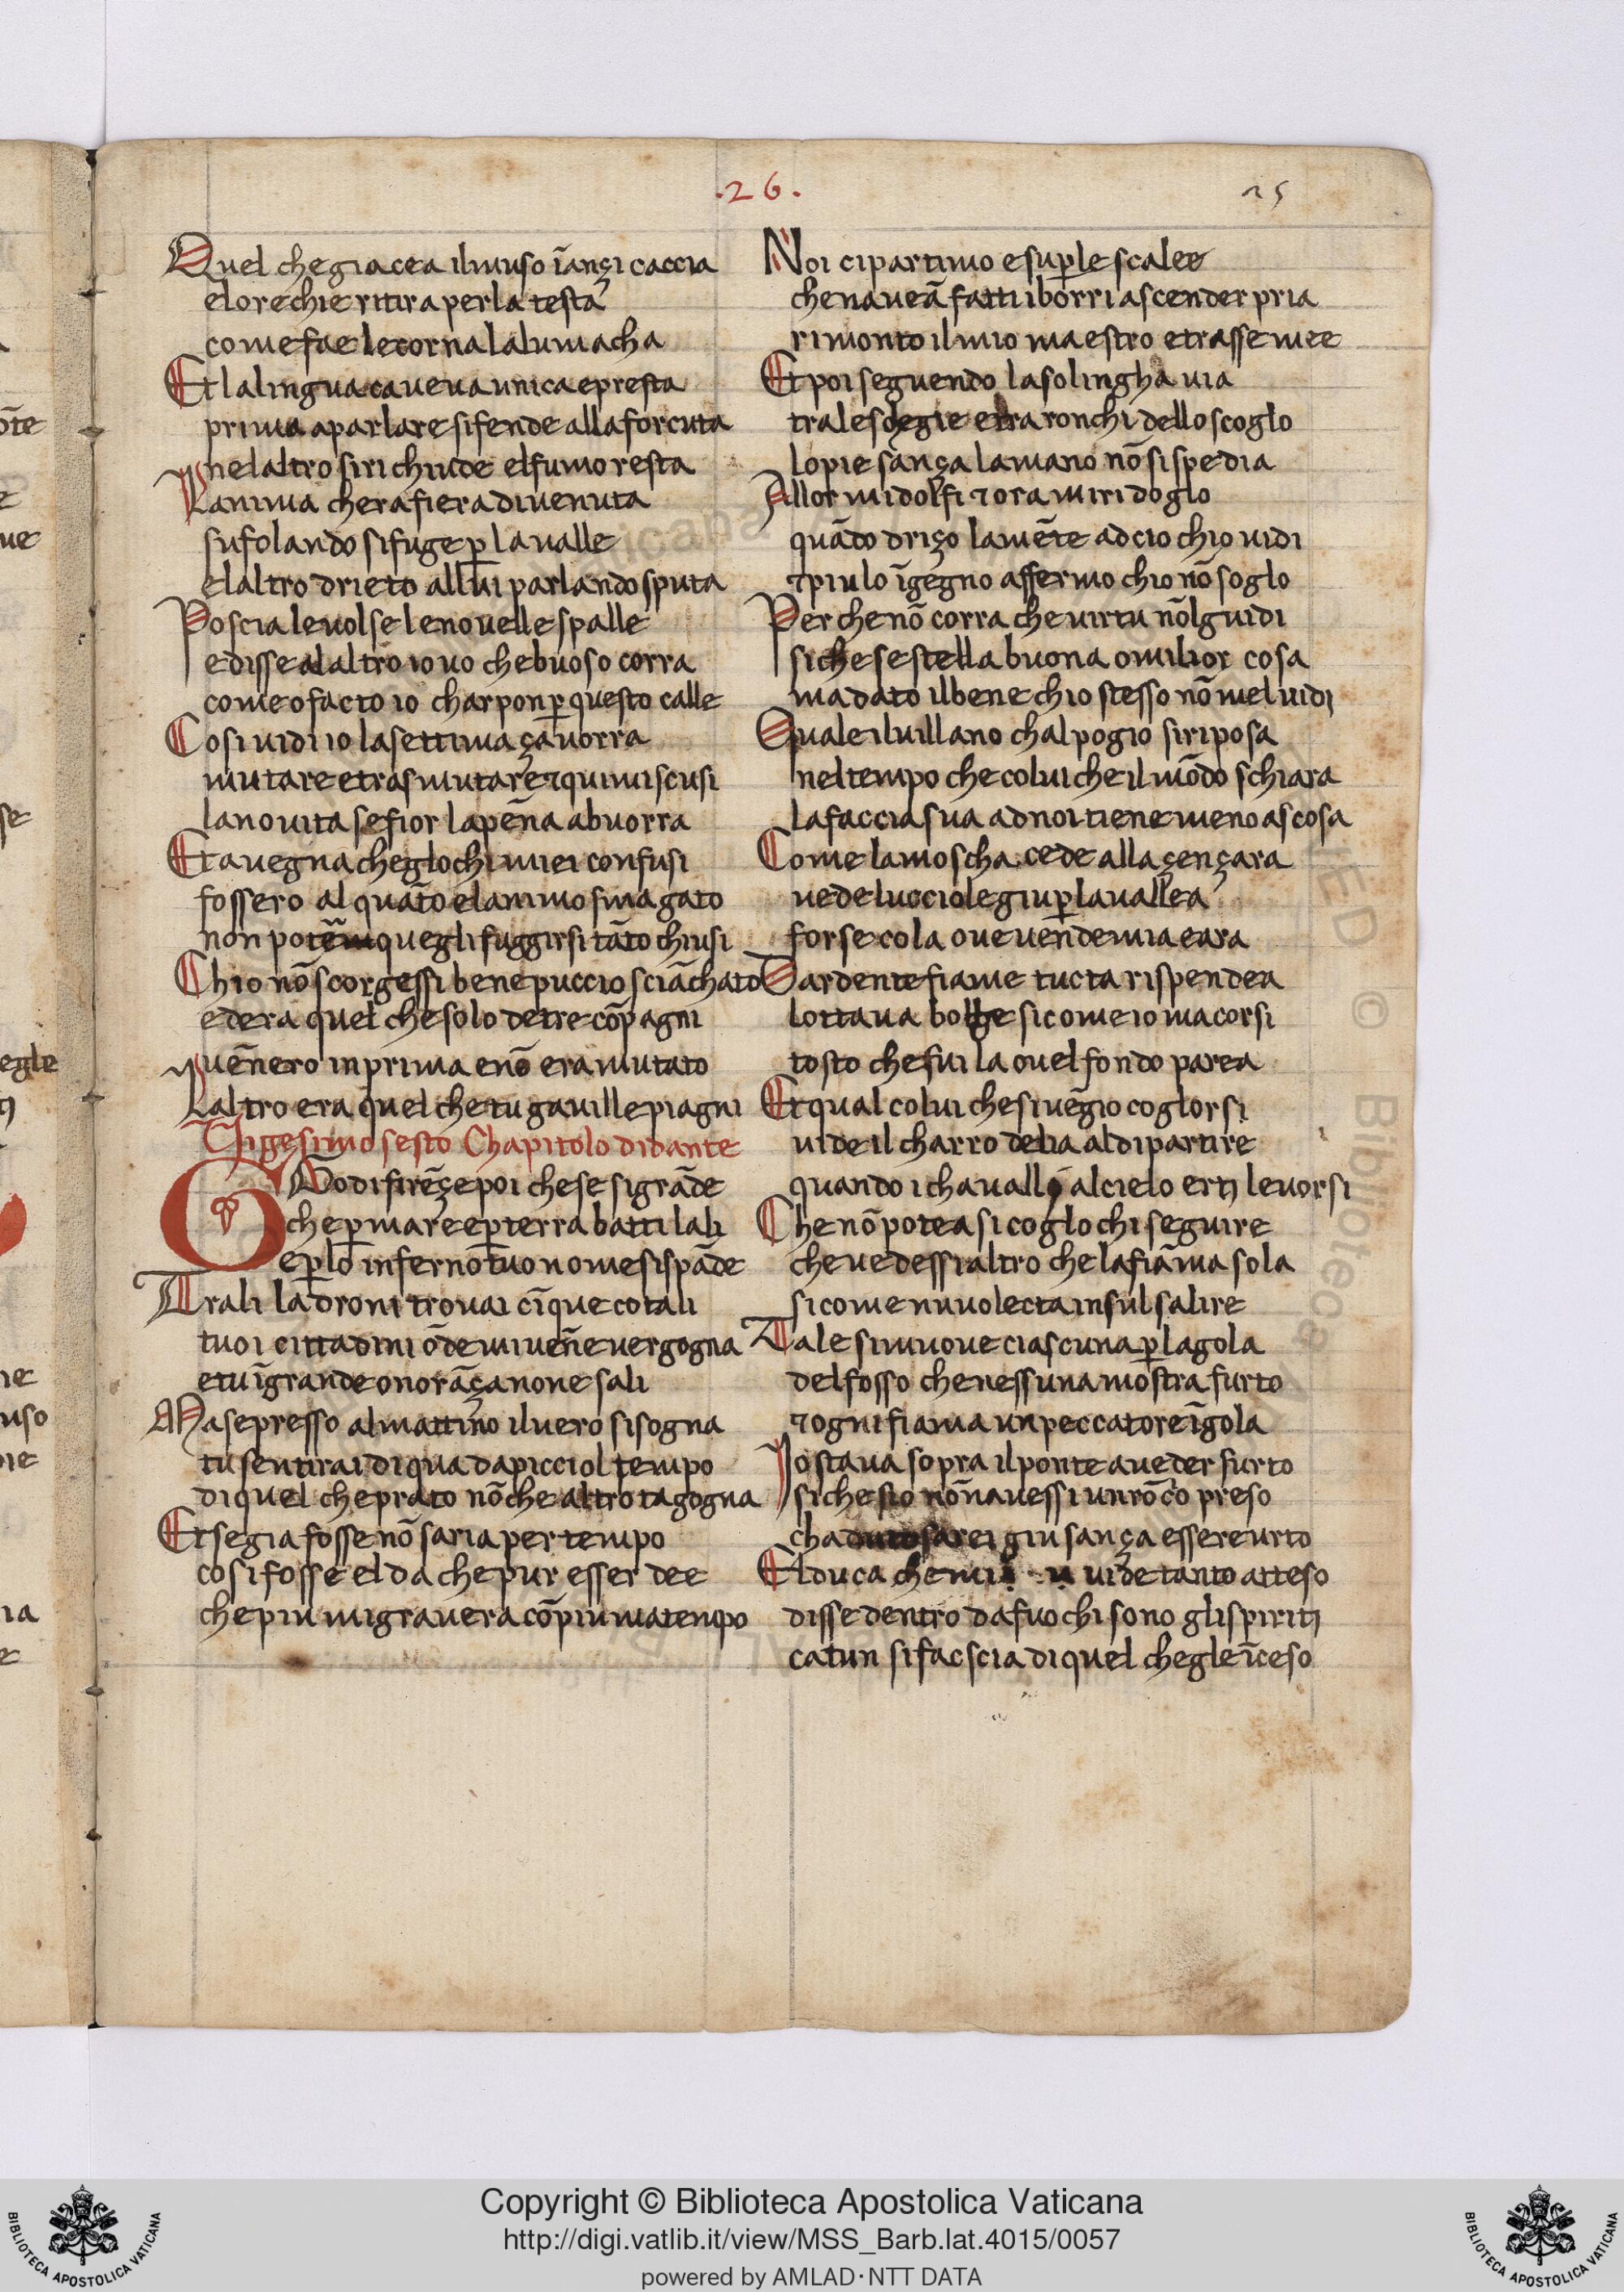 .26.
25
Quel chegiacea ilmuso īançi caccia
elorechie ritira perla testa
come fae lecorna lalumacha
Et lalingua caveva unica epresta
prima aparlare sifende alla forcuta
nelaltro sirichiude elfumo resta
Lanima chera fiera divenuta
sufolando sifuge p̱ la valle
elaltro drieto allui parlando sputa
Poscia levolse lenovelle spalle
edisse alaltro io vo chebuoso corra
come ofacto io charpon p̱ questo calle
Cosi vidi io lasettima çavorra
mutare etrasmutare ⁊ qui miscusi
lanovita sefior lapēna aborra
Et avegna cheglochi miei confusi
fossero al quāto elanimo smagato
non potēm quegli fuggirsi tāto chiusi
Chio nō scorgessi bene puccio sciāchato
edera quel chesolo detre cōpagni
vēnero inprima enō era mutato
Laltro era quel chetu gaville piagni
Vigesimo sesto Chapitolo didante
Godi firēçe poi chese sigrāde
che p̱ mare ep̱ terra batti lali
ep̱ lo inferno tuo nome sispāde
Trali ladroni trovai cīque cotali
tuoi cittadini ōde mi vēne vergogna
etu īgrande onorāça none sali
Ma sepresso almattino ilvero sisogna
tu sentirai di qua dapicciol tempo
di quel cheprato nōche altro tagogna
Et segia fosse nō saria per tempo
cosi fosse elda che pur esser dee
chepiu migravera cōpiu matempo
Noi cipartimo e sup̱ le scalee
chenaveā fatti iborri ascender pria
rimonto ilmio maestro etrasse mee
Et poi seguendo la solingha via
tralescegie etra ronchi delloscoglo
lopie sança lamano nō sispedia
Allor midolsi ⁊ ora miridoglo
quādo driço lamēte adcio chio vidi
⁊piu lo īgegno affermo chio nō soglo
Perche nō corra che virtu nōlguidi
siche se stella buona omilior cosa
madato ilbene chio stesso nō meluidi
Quale ilvillano chalpogio siriposa
neltempo che colui che il mōdo schiara
lafaccia sua adnoi tiene meno ascosa
Come lamoscha cede alla çençara
vede lucciole giu p̱ lavallea
forse cola ove vendemia eara
Dardente fiame tucta rispendea
lottava bolge sicome io macorsi
tosto che fui la ovel fondo parea
Et qual colui chesi vēgio coglorsi
vide il charro delia aldipartire
quando i chavalli alcielo erti levorsi
Che nō potea si coglochi seguire
che vedessi altro che lafiāma sola
sicome nuvolecta insul salire
Tale simuove ciascuna p̱ lagola
delfosso chenessuna mostra furto
⁊ogni fiama un peccatore īgola
Io stava sopra ilponte aveder surto
siche sio nōnavessi un rōco preso
chaduto sarei giu sança essere urto
Elduca che mi vide tanto atteso
disse dentro dafuochi sono glispiriti
catun sifascia di quel chegle īceso
Copyright © Biblioteca Apostolica Vaticana
http://digi.vatlib.it/view/MSS_Barb.lat.4015/0057
powered by AMLAD·NTT DATA
BIBLIOTECA APOSTOLICA VATICANA
BIBLIOTECA APOSTOLICA VATICANA